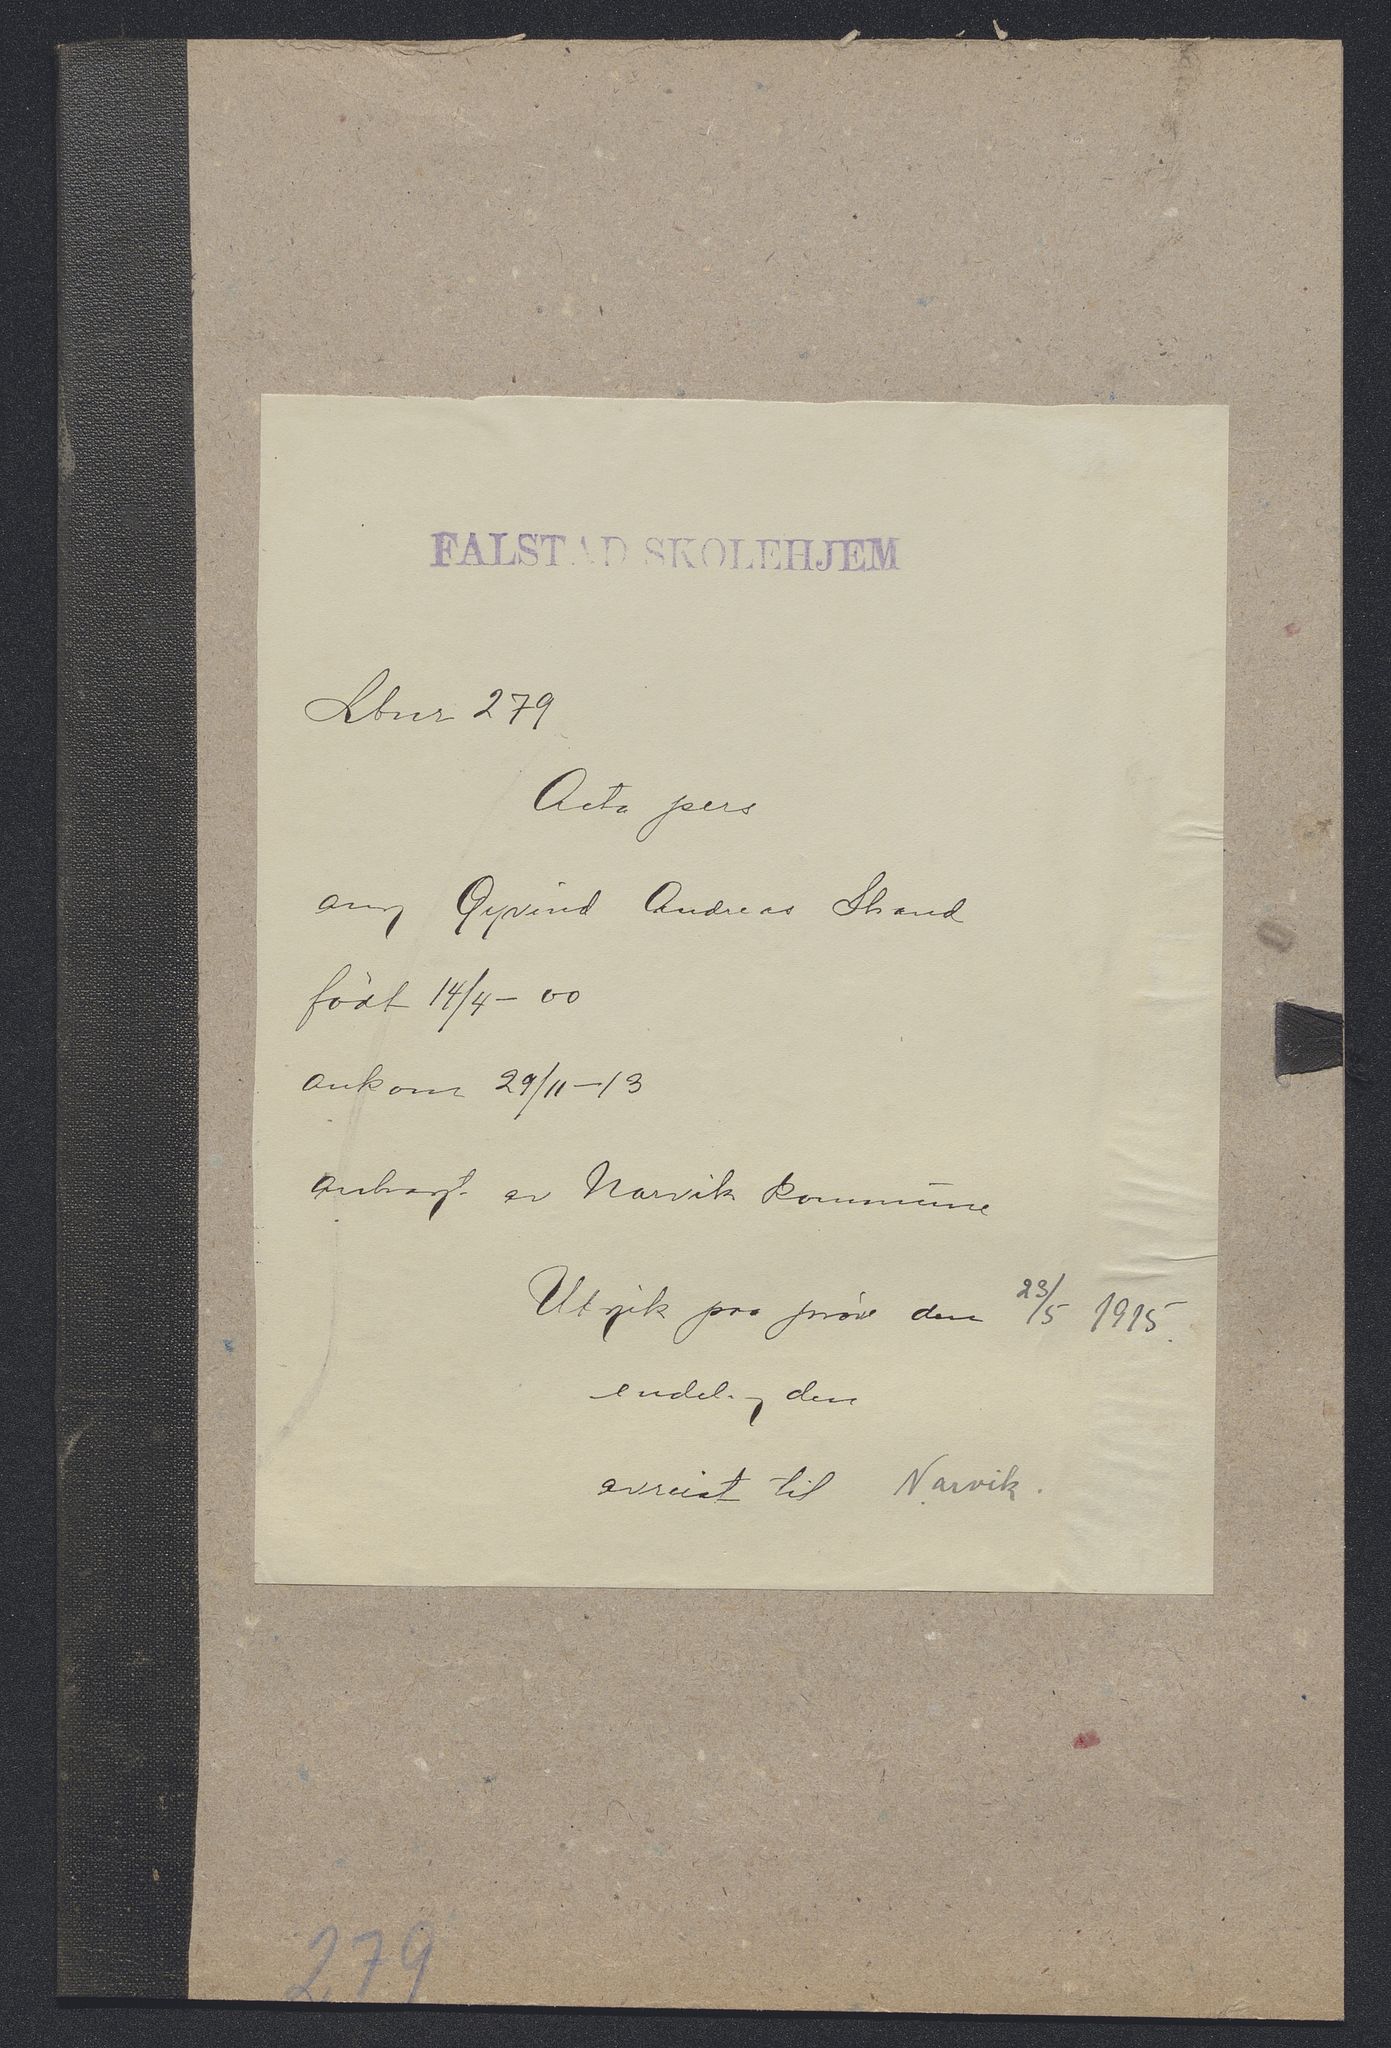 FALSTAD SKOLEHJEM
Lbnr 279
Acta pers
ang Øyvind Andreas Strand
født 14/4 - 00
ankom 29/11 - 13
anbragt av Narvik kommune
Utgik paa prøve den 23/5 1915.
endelig den
avreist til Narvik.
279